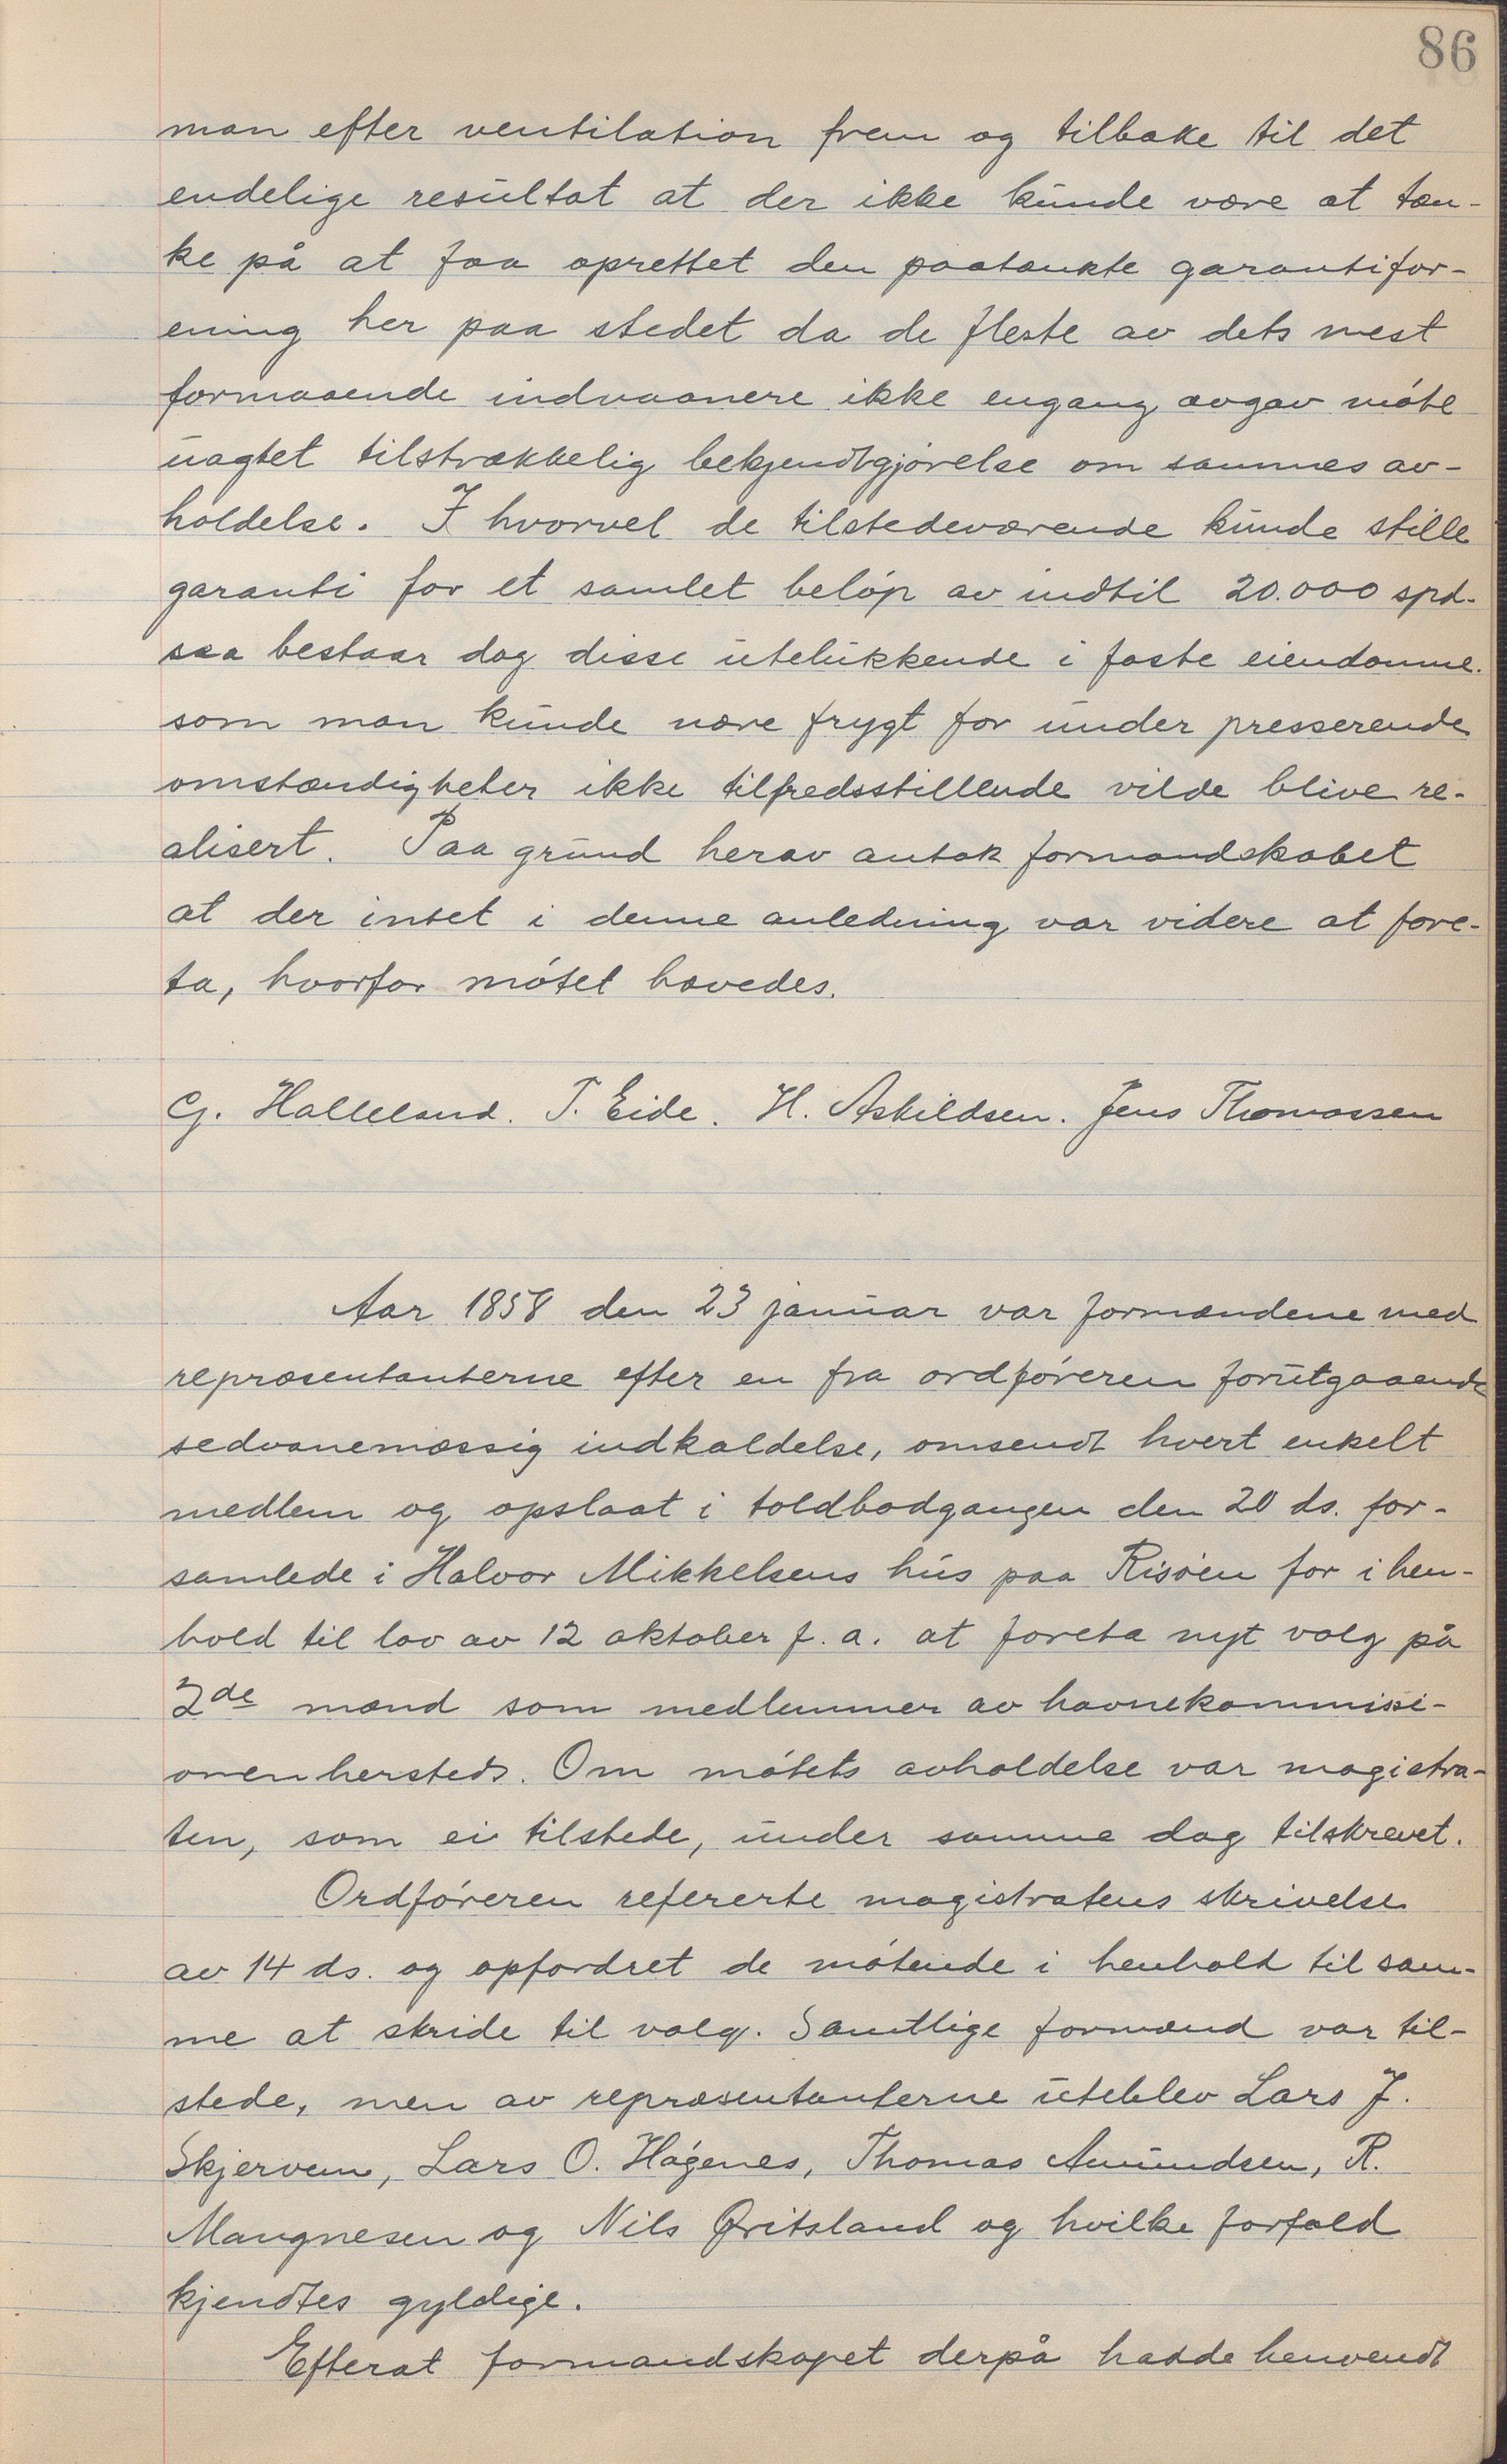 86
man efter ventilation frem og tilbake til det
endelige resultat at der ikke kunde være at tæn-
ke på at faa oprettet den paatænkte garantifor-
ening her paa stedet da de fleste av dets mest
formaaende indvaanere ikke engang avgav møte
uagtet tilstrækkelig bekjendtgjørelse om sammes av-
holdelse. I hvorvel de tilstedeværende kunde stille
garanti for et samlet beløp av indtil 20.000 spd.
saa bestaar dog disse utelukkende i faste eiendomme.
som man kunde nære frygt for under presserende
omstændigheter ikke tilfredsstillende vilde blive re-
alisert. Paa grund herav antok formandskabet
at der intet i denne anledning var videre at fore-
ta, hvorfor møtet hævedes.
G. Halleland. T. Eide. H. Askildsen. Jens Thomassen
Aar 1858 den 23 januar var formændene med
repræsentanterne efter en fra ordføreren forutgaaende
sedvanemæssig indkaldelse, omsendt hvert enkelt
medlem og opslaat i toldbodgangen den 20 ds. for-
samlede i Halvor Mikkelsens hus paa Risøen for i hen-
hold til lov av 12 oktober f. a. at foreta nyt valg på
2de mænd som medlemmer av havnekommissi-
onen hersteds. Om møtets avholdelse var magistra-
ten, som ei tilstede, under samme dag tilskrevet.
Ordføreren refererte magistratens skrivelse
av 14 ds. og opfordret de møtende i henhold til sam-
me at skride til valg. Samtlige formænd var til-
stede, men av repræsentanterne uteblev Lars J.
Skjervem, Lars O. Høgenes, Thomas Amundsen, R.
Mangnesen og Nils Øritsland og hvilke forfald
kjendtes gyldige.
Efterat formandskapet derpå hadde henvendt